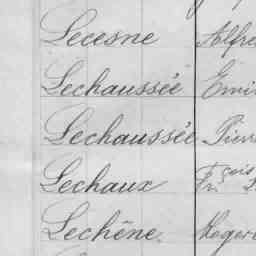 Lecesne Alfre
Lechaussée Emi
Lechaussée Pierr
Lechaux
Lechêne.